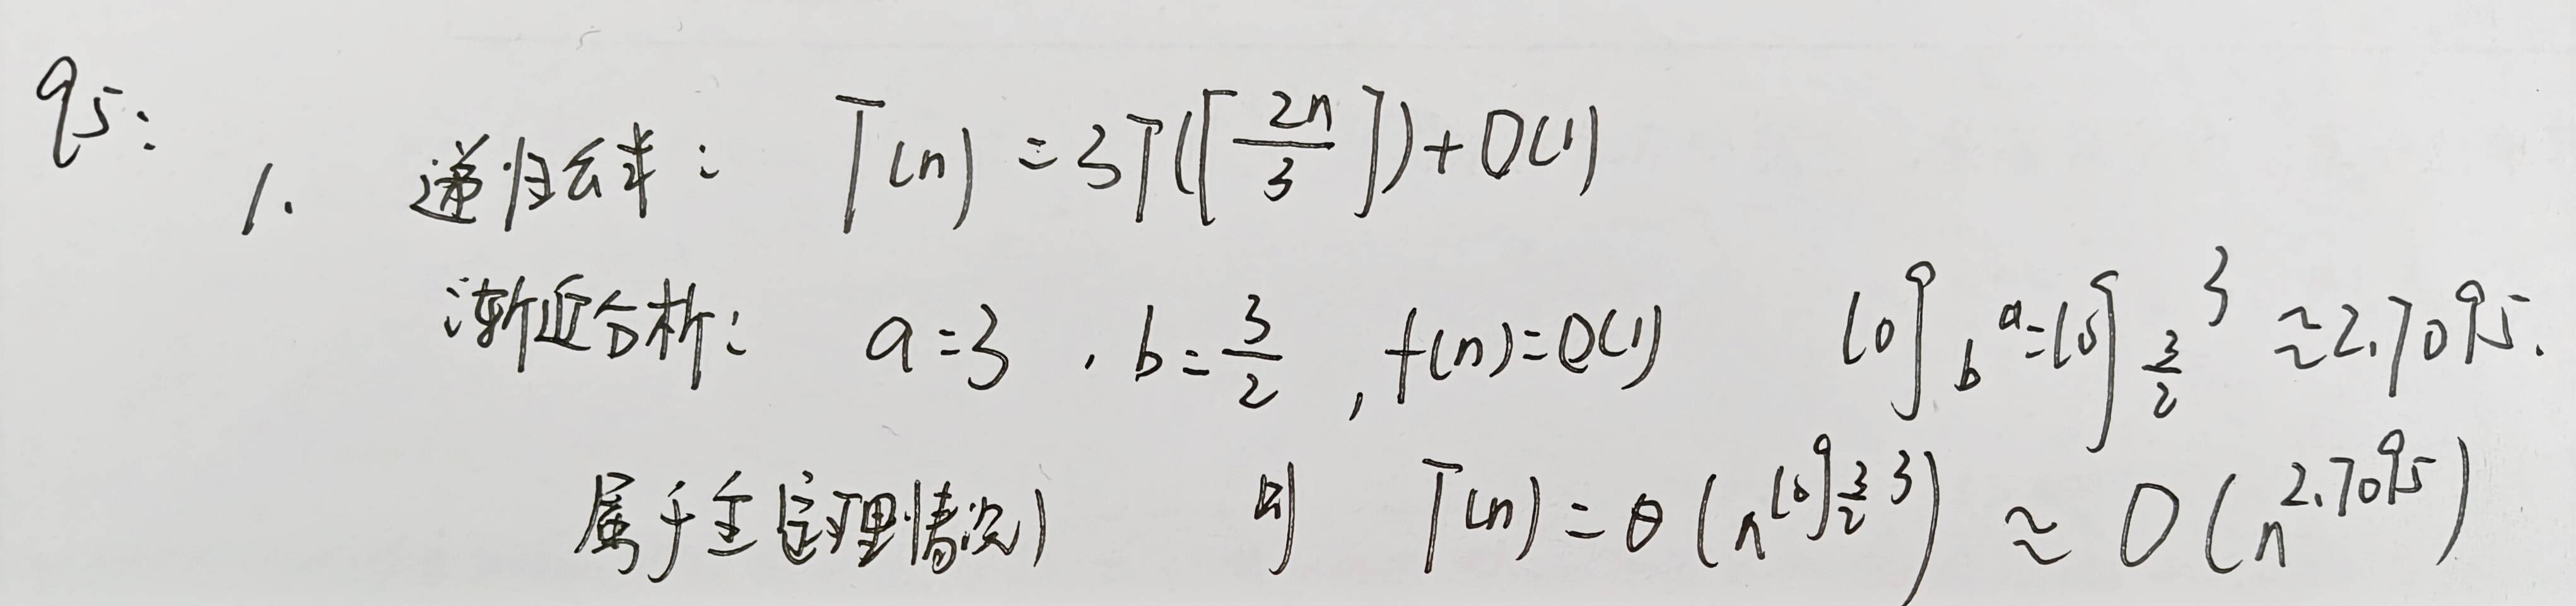 q5:
1. 递归公式: T(n) = 3T(⌈2n/3⌉) + O(1)
渐近分析: a=3, b=3/2, f(n)=O(1) log_b a = log_{3/2} 3 ≈ 2.7095.
属于主定理情况1 则 T(n) = θ(n^{log_{3/2} 3}) ≈ O(n^{2.7095})